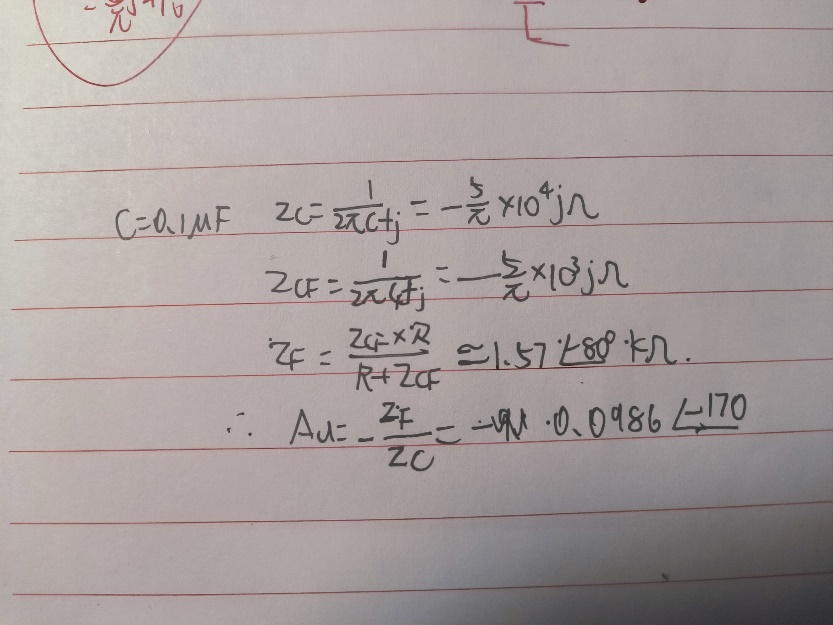 C=0.1μF ZC=\frac{1}{2πCfj}=-\frac{5}{π}×10^4jΩ
ZCF=\frac{1}{2πCfj}=-\frac{5}{π}×10^3jΩ
ZF=\frac{ZCF×R}{R+ZCF}≃1.57∠-80°·kΩ.
∴ Au=-\frac{ZF}{ZC}= ·0.0986∠-170